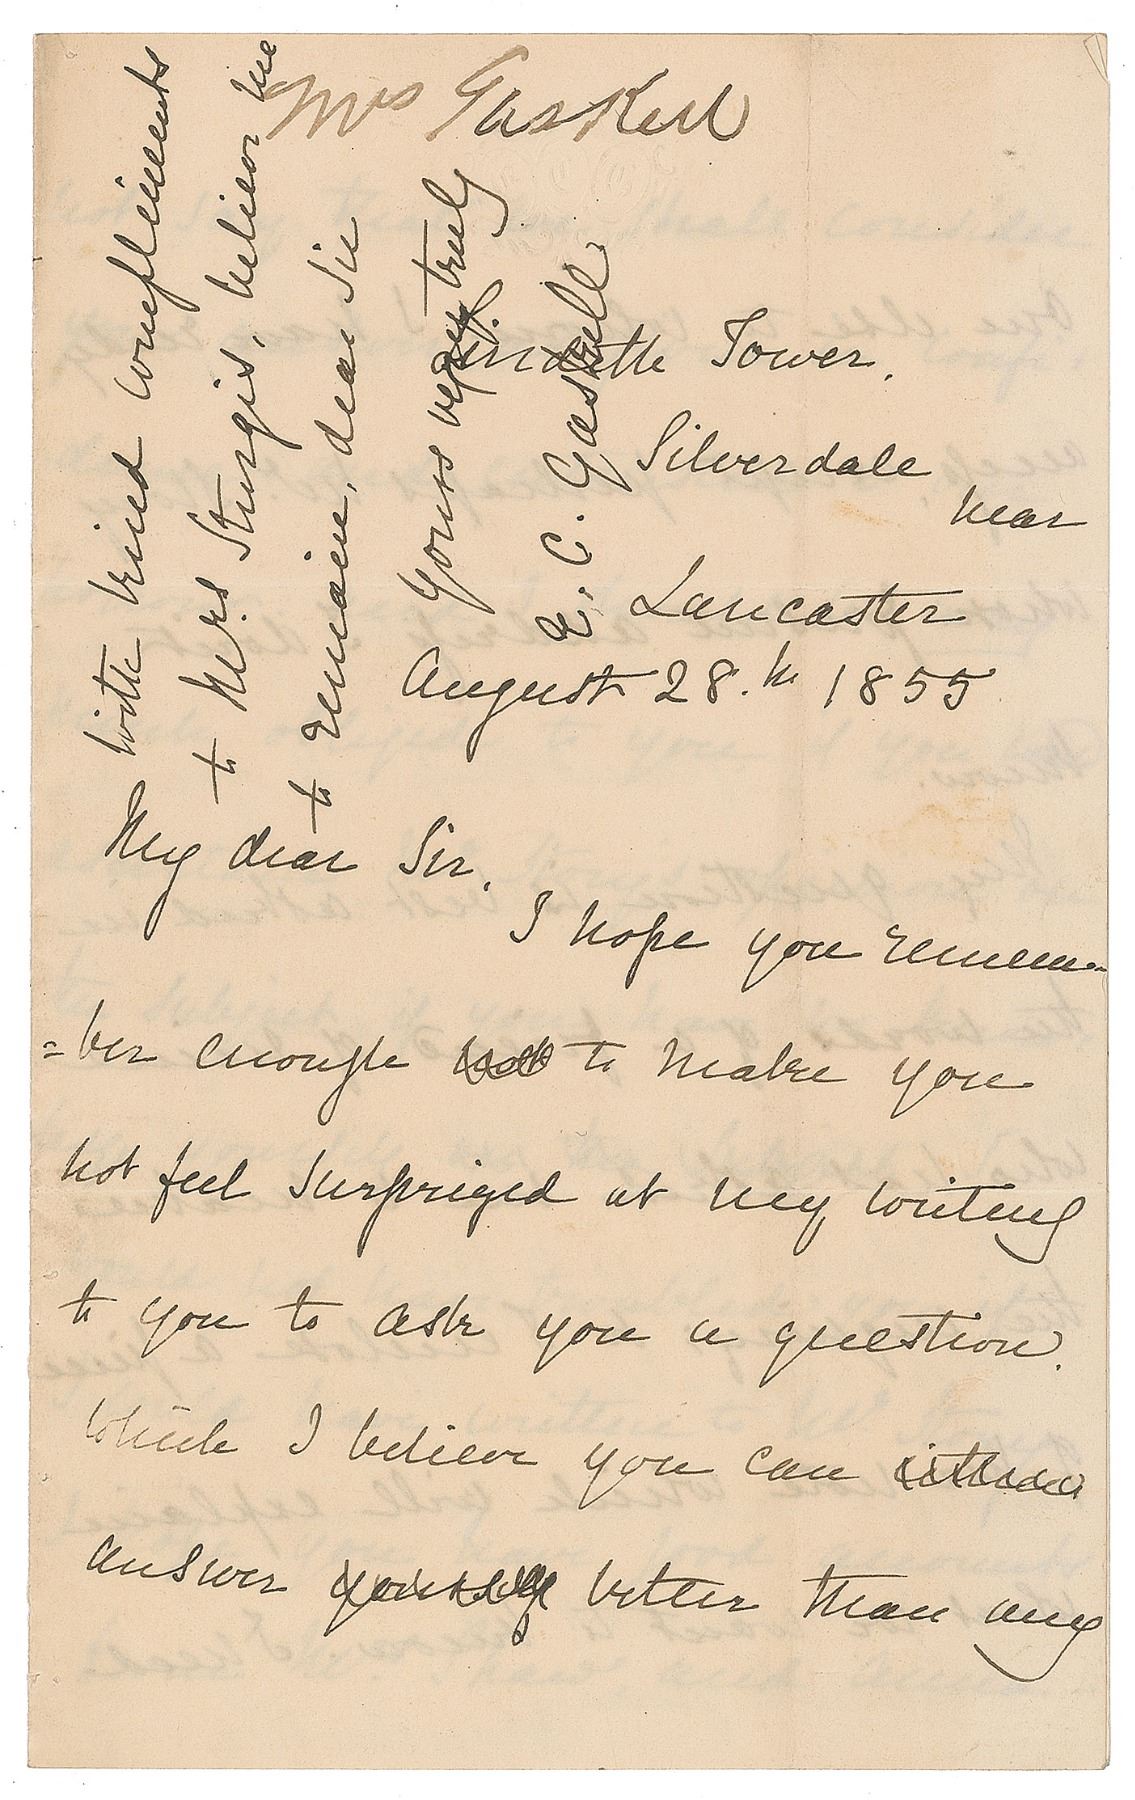 Mrs Gaskell
Tower.
Silverdale
near
Lancaster
August 28.th 1855
My dear Sir.
I hope you remem-
=ber enough not to make you
not feel surprized at my writing
to you to ask you a question.
which I believe you can either
answer yourself better than any
with kind compliments
to Mrs Sturgis, believe me
to remain, dear Sir
Yours very truly
E. C. Gaskell